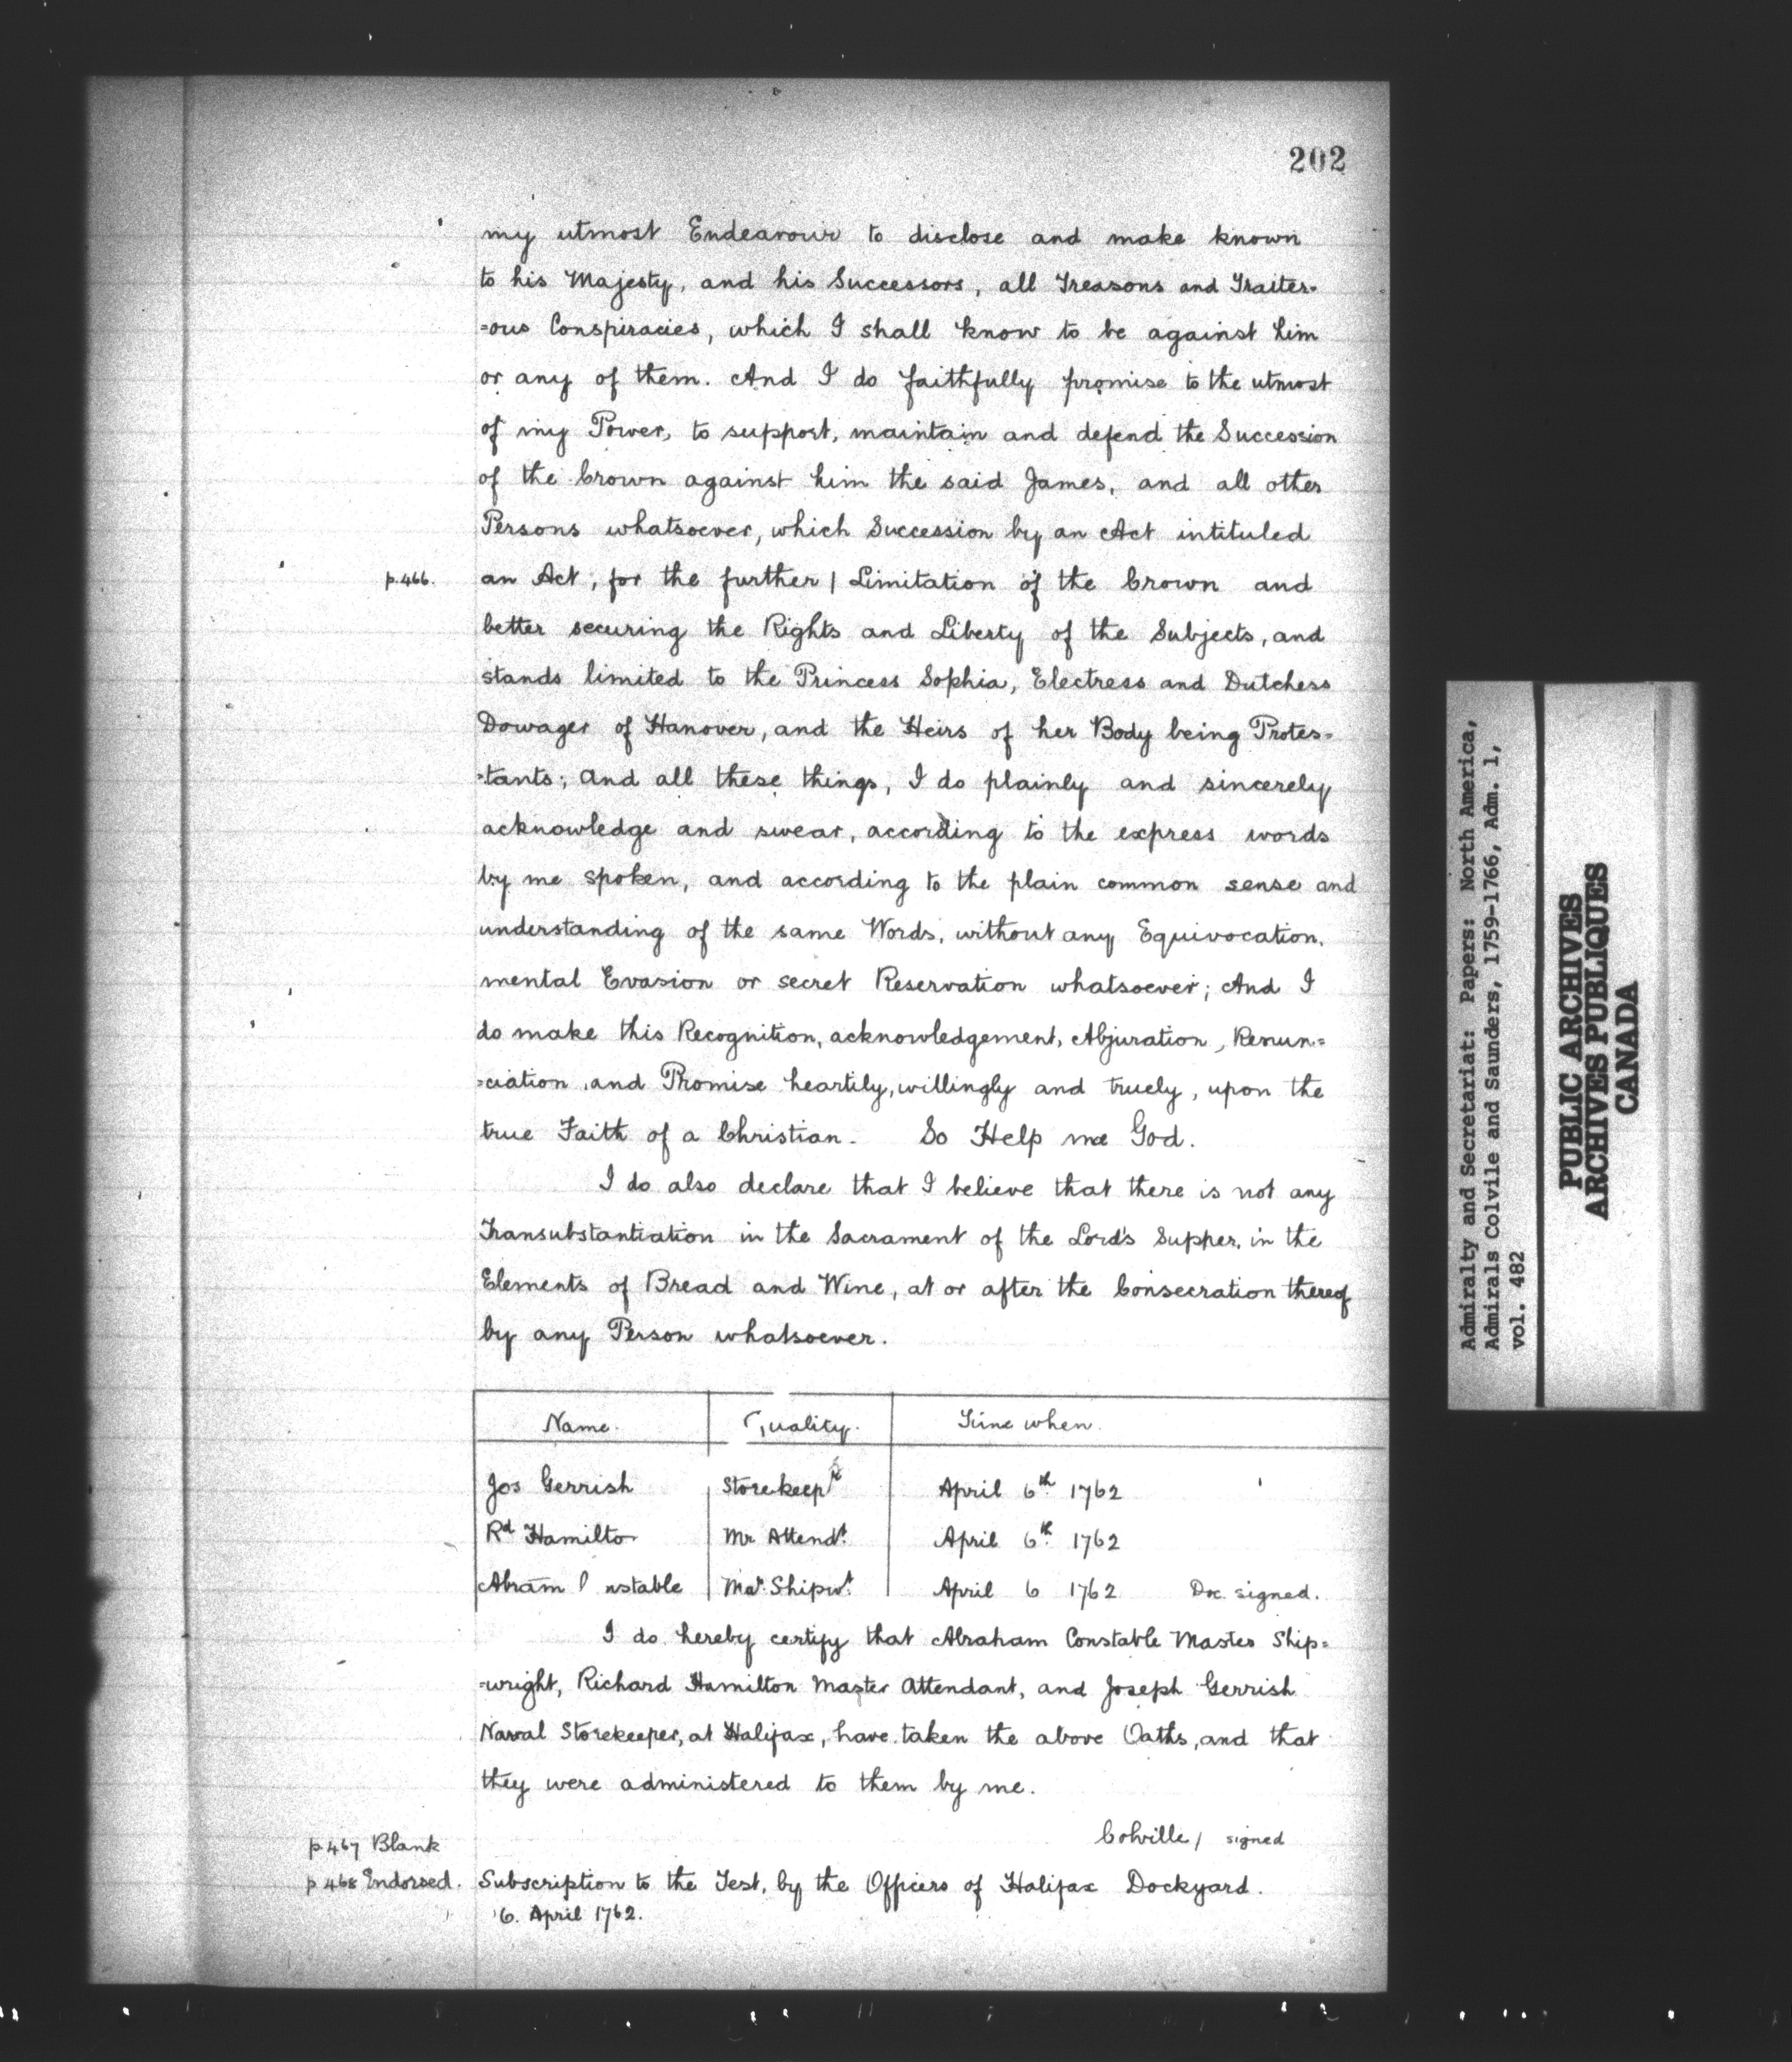 202
my utmost Endeavour to disclose and make known
to his Majesty, and his Successors, all Treasons and Traiter=
=ous Conspiracies, which I shall know to be against him
or any of them. And I do faithfully promise to the utmost
of my Power, to support, maintain and defend the Succession
of the Crown against him the said James, and all other
Persons whatsoever, which Succession by an Act intituled
p.466. an Act, for the further / Limitation of the Crown and
better securing the Rights and Liberty of the Subjects, and
stands limited to the Princess Sophia, Electress and Dutchess
Dowager of Hanover, and the Heirs of her Body being Protes=
=tants; And all these things, I do plainly and sincerely
acknowledge and swear, according to the express words
by me spoken, and according to the plain common sense and
understanding of the same Words, without any Equivocation,
mental Evasion or secret Reservation whatsoever; And I
do make this Recognition, acknowledgement, Abjuration, Renun=
=ciation and Promise heartily, willingly and truely, upon the
true Faith of a Christian. So Help me God.
I do also declare that I believe that there is not any
Transubstantiation in the Sacrament of the Lord's Supper, in the
Elements of Bread and Wine, at or after the Consecration thereof
by any Person whatsoever.
Name. Quality. Time when.
Jos Gerrish Storekeepr April 6th 1762
Rd Hamilton Mr Attendt. April 6th 1762
Abram Constable Mar. Shipwt. April 6 1762 Doc. signed.
I do hereby certify that Abraham Constable Master Ship=
=wright, Richard Hamilton Master Attendant, and Joseph Gerrish
Naval Storekeeper, at Halifax, have taken the above Oaths, and that
they were administered to them by me.
Colville / signed
p.467 Blank
p 468 Endorsed. Subscription to the Test, by the Officers of Halifax Dockyard.
6. April 1762.
Admiralty and Secretariat: Papers: North America,
Admirals Colvile and Saunders, 1759-1766, Adm. 1,
vol. 482
PUBLIC ARCHIVES
ARCHIVES PUBLIQUES
CANADA